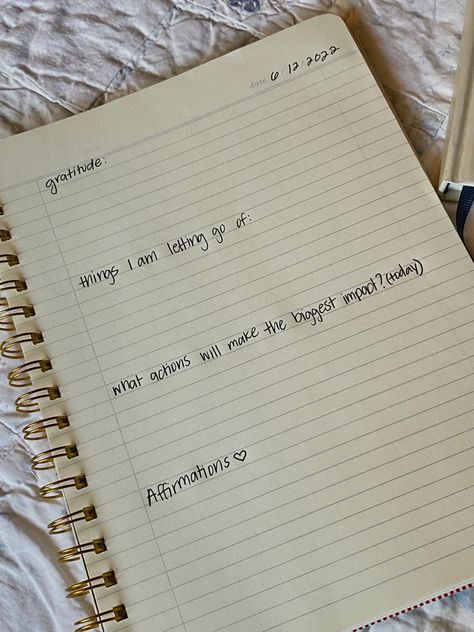 date 6/12/2022
gratitude:
things I am letting go of:
what actions will make the biggest impact? (today)
Affirmations ♡